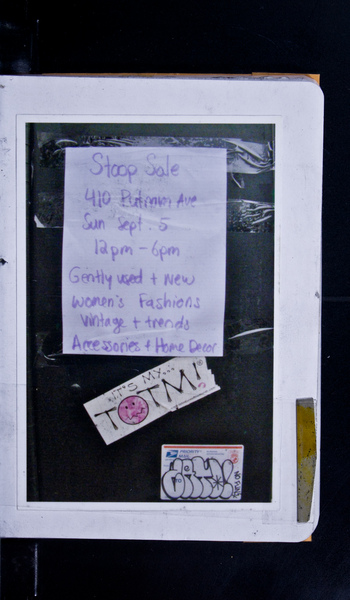 Stoop Sale
410 Putnam Ave
Sun Sept. 5
12pm - 6pm
Gently used + New
Women's Fashions
Vintage + trends
Accessories + Home Decor
IT'S MY...
TOTM!
PRIORITY
MAIL